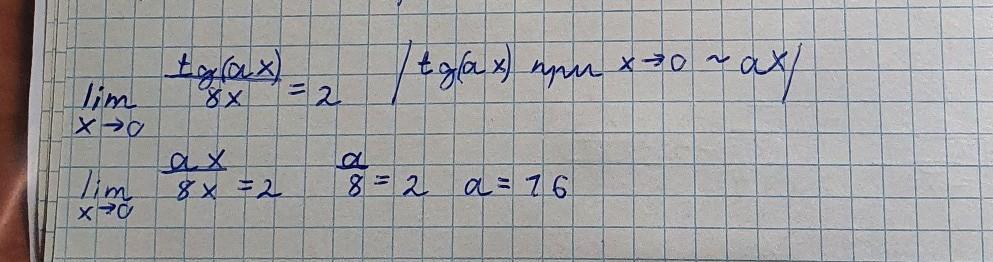 lim x→0 tg(ax)/8x = 2 /tg(ax) при x→0 ~ ax/
lim x→0 ax/8x = 2 a/8 = 2 a = 16